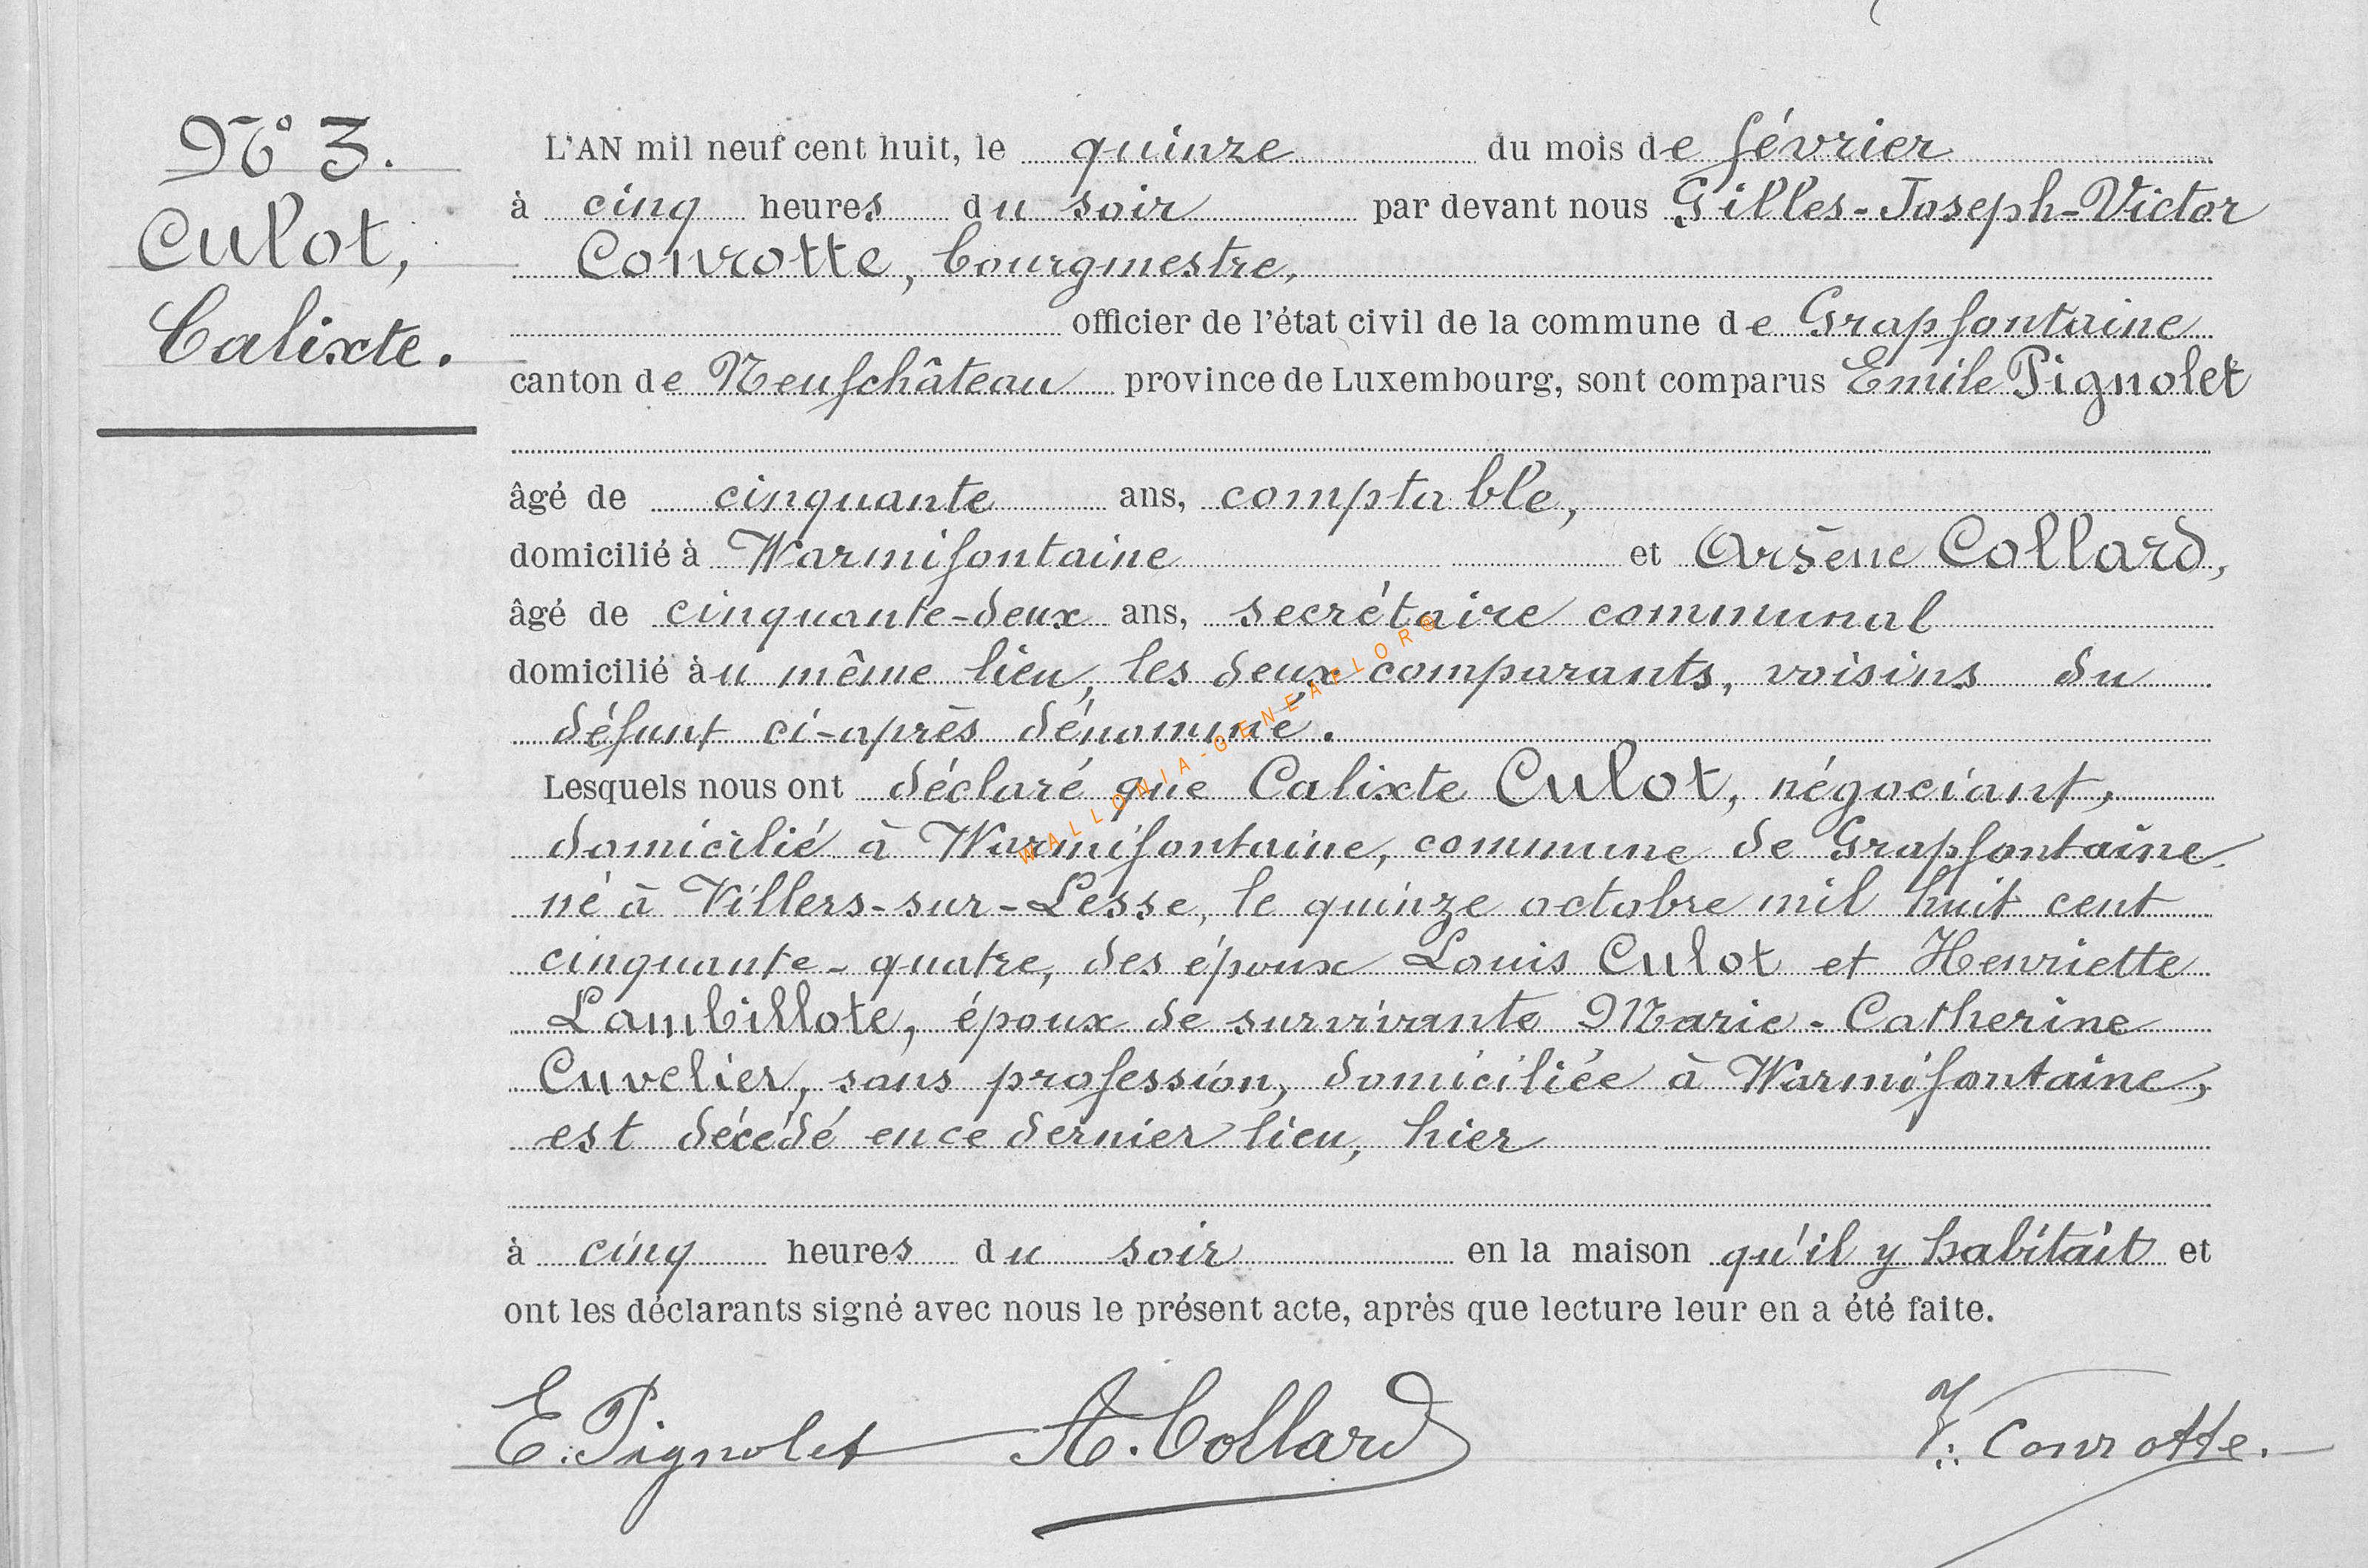 N° 3.
Culot,
Calixte.
L'AN mil neuf cent huit, le quinze du mois de février
à cinq heures du soir par devant nous Gilles-Joseph-Victor
Conrotte, bourgmestre,
officier de l'état civil de la commune de Grapfontaine
canton de Neufchâteau province de Luxembourg, sont comparus Emile Pignolet
âgé de cinquante ans, comptable,
domicilié à Warmifontaine et Arsène Collard,
âgé de cinquante-deux ans, secrétaire communal
domicilié àu même lieu, les deux comparants, voisins du
défunt ci-après dénommé.
Lesquels nous ont déclaré que Calixte Culot, négociant,
domicilié à Warmifontaine, commune de Grapfontaine
né à Villers-sur-Lesse, le quinze octobre mil huit cent
cinquante-quatre, des époux Louis Culot et Henriette
Lambillote, époux de survivante Marie-Catherine
Cuvelier, sans profession, domiciliée à Warmifontaine,
est décédé en ce dernier lieu, hier
à cinq heures du soir en la maison qu'il y habitait et
ont les déclarants signé avec nous le présent acte, après que lecture leur en a été faite.
E. Pignolet A. Collard V. Conrotte.
WALLONIA-GENEAT.ORG